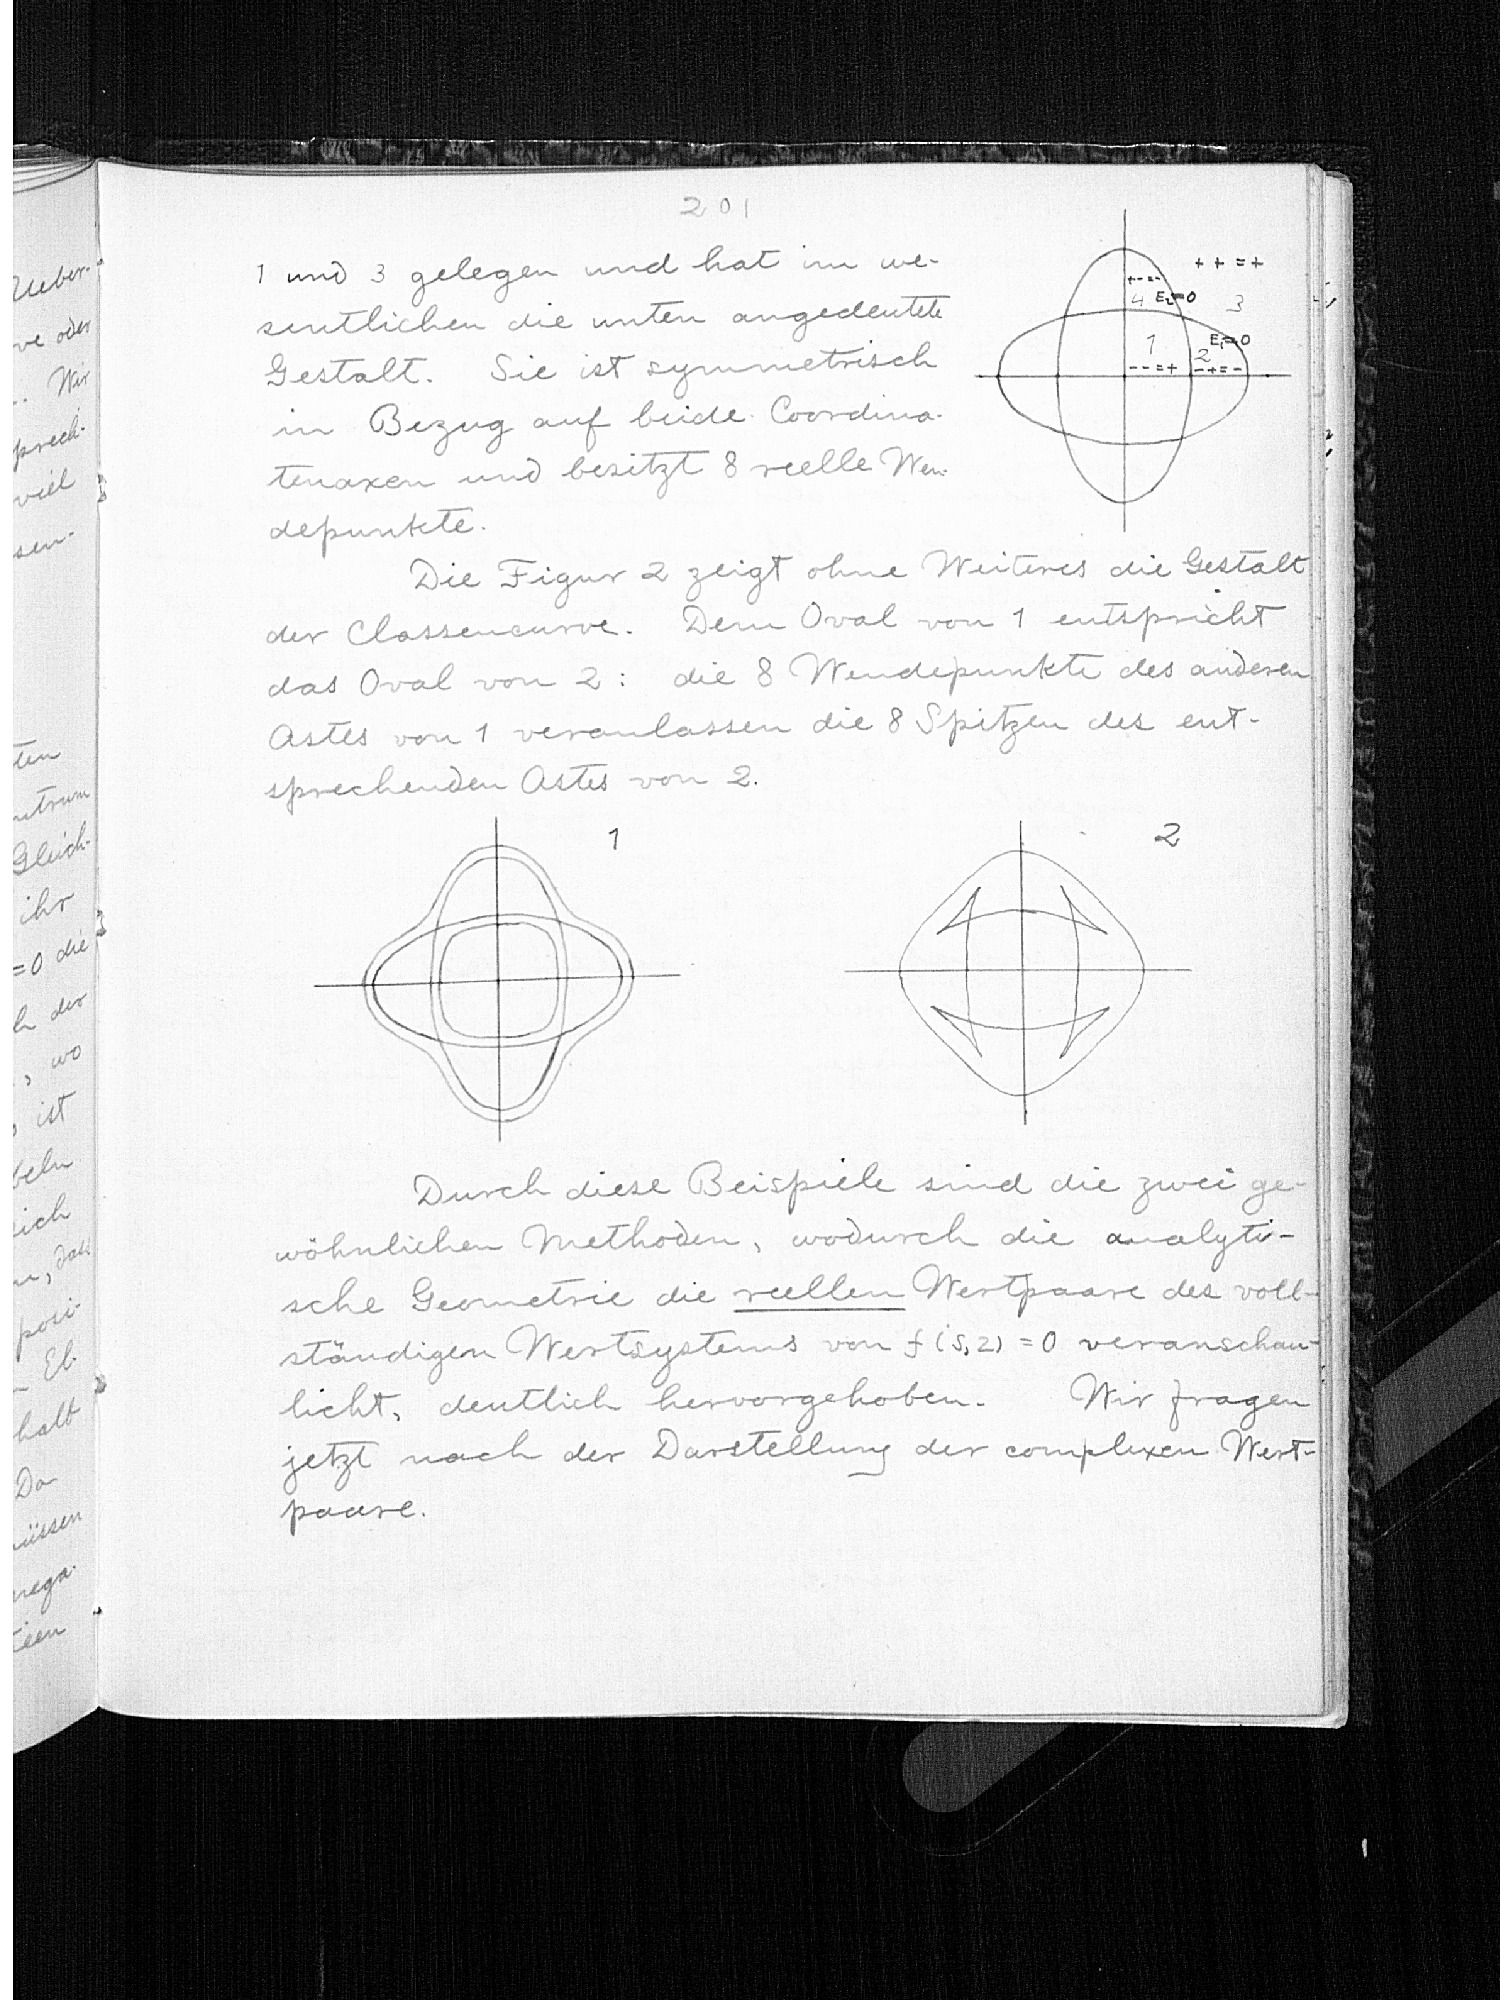 201
1 und 3 gelegen und hat im we-
sentlichen die unten angedeutete
Gestalt. Sie ist symmetrisch
in Bezug auf beide Coordina-
tenaxen und besitzt 8 reelle Wen-
depunkte.
+ + = +
+ - = -
4 E₂=0 3
E₁=0
1 2
- - = + - + = -
Die Figur 2 zeigt ohne Weiteres die Gestalt
der Classencurve. Dem Oval von 1 entspricht
das Oval von 2: die 8 Wendepunkte des anderen
Astes von 1 veranlassen die 8 Spitzen des ent-
sprechenden Astes von 2.
1 2
Durch diese Beispiele sind die zwei ge-
wöhnlichen Methoden, wodurch die analyti-
sche Geometrie die reellen Wertpaare des voll-
ständigen Wertsystems von f(s,z) = 0 veranschau-
licht, deutlich hervorgehoben. Wir fragen
jetzt nach der Darstellung der complexen Wert-
paare.
Ueber-
ve oder
. Wir
sprech-
viel
sen-
ten
ntrum
Gleich-
ihr
=0 die
h der
, wo
ist
beln
ich
posi-
halb
Da
müssen
nega-